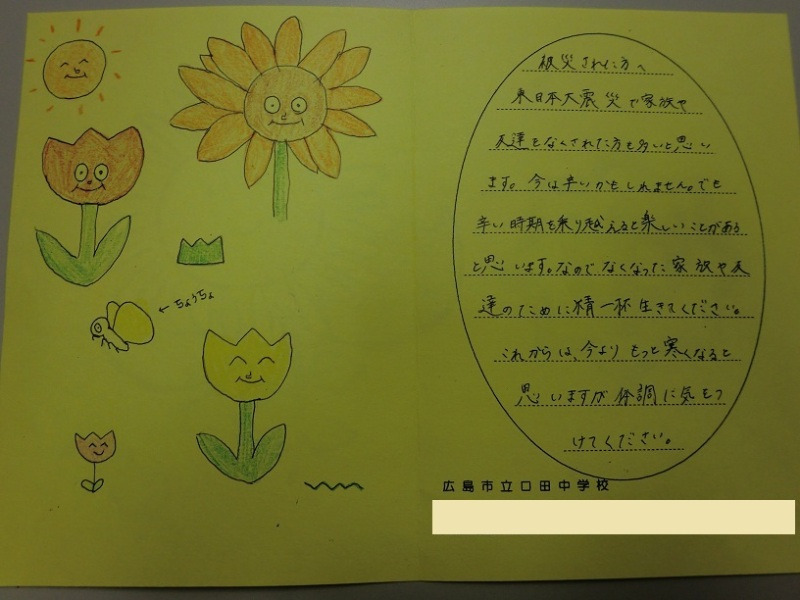 ちょうちょ
被災された方へ
東日本大震災で家族や
友達をなくされた方も多いと思い
ます。今は辛いかもしれません。でも
辛い時期を乗り越えると楽しいことがある
と思います。なのでなくなった家族や友
達のために精一杯生きてください。
これからは、今よりもっと寒くなると
思いますが体調に気をつ
けてください。
広島市立口田中学校